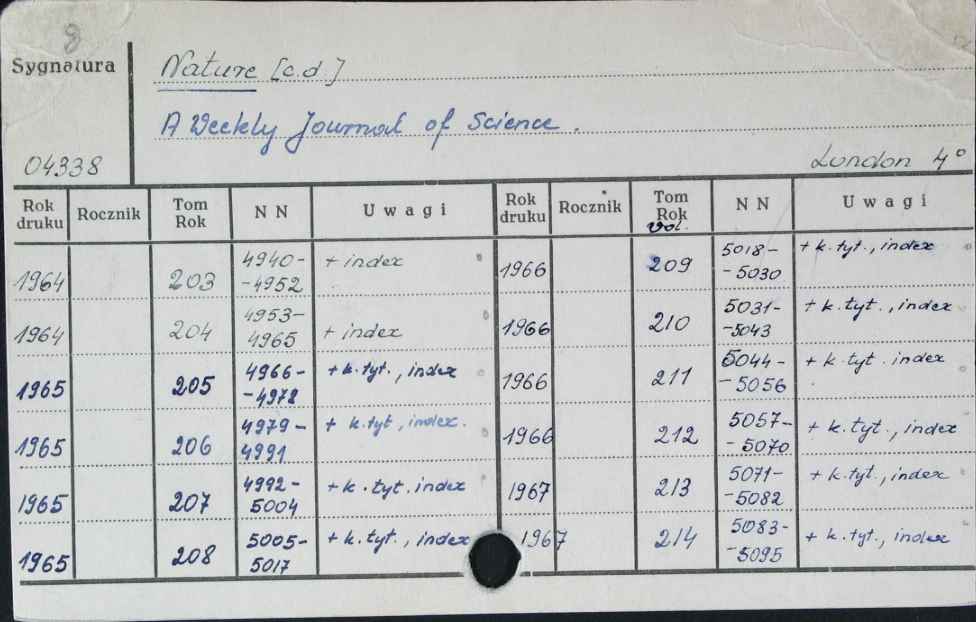 8
Sygnatura
Nature [c.d.]
A Weekly Journal of Science.
04338
London 4°
Rok druku Rocznik Tom Rok NN Uwagi Rok druku Rocznik Tom Rok vol. NN Uwagi
1964 203 4940-
-4952 + index
1964 204 4953-
4965 + index
1965 205 4966-
-4978 + k.tyt., index
1965 206 4979-
4991 + k.tyt, index.
1965 207 4992-
5004 + k.tyt. index
1965 208 5005-
5017 + k.tyt., index
1966 209 5018-
-5030 + k.tyt., index
1966 210 5031-
-5043 + k.tyt., index
1966 211 5044-
-5056 + k.tyt. index
1966 212 5057-
-5070 + k.tyt., index
1967 213 5071-
-5082 + k.tyt., index
1967 214 5083-
-5095 + k.tyt., index